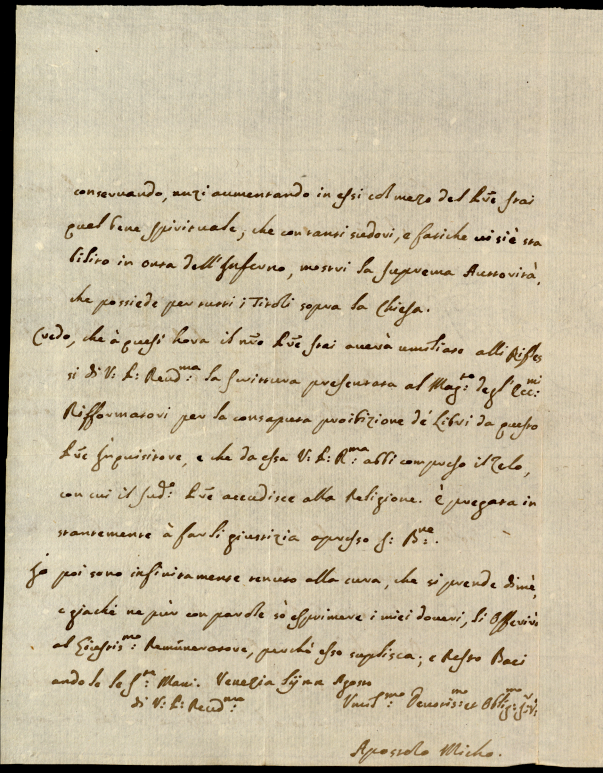 conservando, anzi aumentando in essi col mezo del Pre̅ Frai
quel bene spirituale, che con tanti sudori, e fatiche vi si è sta
bilito in onta dell'Inferno, mostri la suprema Auttorità,
che possiede per tutti i Titoli sopra la Chiesa.
Credo, che à quest'hora il nro̅ Pre̅ Frai averà umiliato alli Rifles
si di V: P: Reud:ma la scrittura presentata al Mag:to degl'Ecc:mi
Rifformatori per la consaputa proibizione de' Libri da questo
Pre̅ Inquisitore, e che da essa V: P: R:ma abbi compreso il zelo,
con cui il sud:o Pre̅ accudisce alla Religione. È pregata in
stantemente à farli giustizia apresso S: B:ne.
Io poi sono infinitamente tenuto alla cura, che si prende di mè,
e giachè ne pùr con parole sò esprimere i miei doveri, li Offerirò
al Remuneratore, perchè esso suplisca; e Resto Baci
ando le S:te Mani. Venezia Agosto
di V: P: Reud:ma
Umil:mo Devotis:mo et Obblig:mo Ser:
Apostolo Micho.